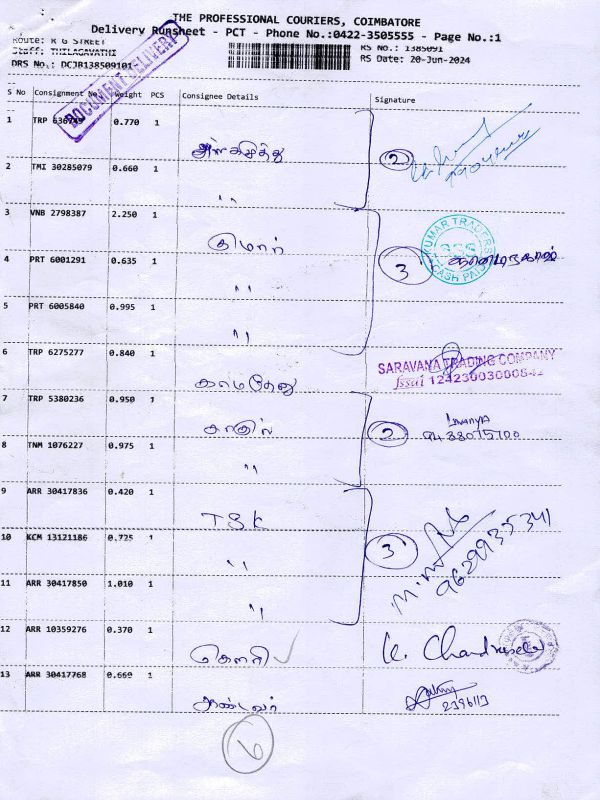 THE PROFESSIONAL COURIERS, COIMBATORE
Delivery Runsheet - PCT - Phone No.:0422-3505555 - Page No.:1
Route: R G STREET
Staff: THILAGAVATHI
RS No.: 1385091
DRS No.: DCJB138509101-
RS Date: 20-Jun-2024
DOCUMENT DELIVERY
S No Consignment No. Weight PCS Consignee Details Signature
1 TRP 0.770 1
2
2 TMI 30285079 0.660 1
" "
3 VNB 2798387 2.250 1
குமார்
KUMAR TRADERS
CASH PAID
3
4 PRT 6001291 0.635 1
" "
5 PRT 6005840 0.995 1
" "
6 TRP 6275277 0.840 1
காமதேனு
SARAVANA TRADING COMPANY
fssai
7 TRP 5380236 0.950 1
2
8 TNM 1076227 0.975 1
" "
9 ARR 30417836 0.420 1
TSK
3
9629935341
10 KCM 13121186 0.725 1
" "
11 ARR 30417850 1.010 1
" "
12 ARR 10359276 0.370 1
கௌரி
13 ARR 30417768 0.669 1
ஆண்டவர்
6